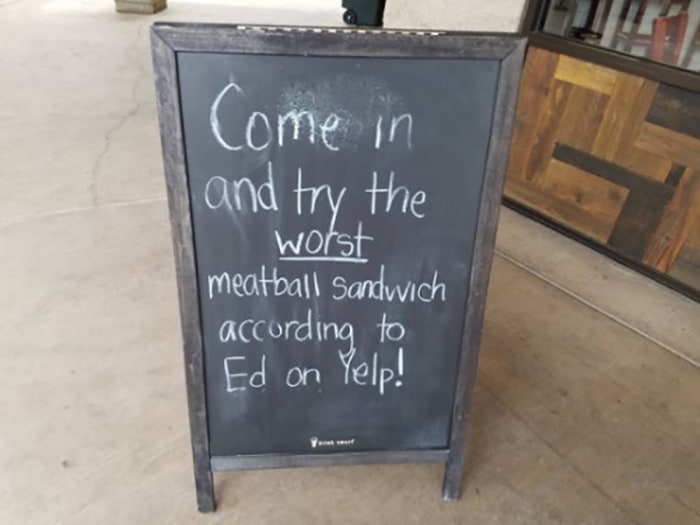 Come in
and try the
worst
meatball sandwich
according to
Ed on Yelp!